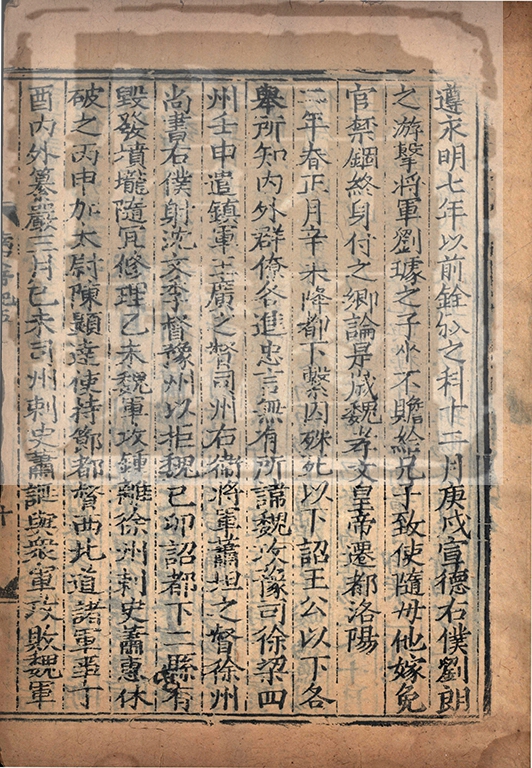 遵永明七年以前銓叙之科十二月庚戌宣德右僕劉朗
之游擊將軍劉璩之子坐不贍給兄子致使隨母他嫁免
官禁錮終身付之鄉論是歲魏孝文皇帝遷都洛陽
二年春正月辛未降都下繫囚殊死以下詔王公以下各
舉所知内外群僚各進忠言無有所諱魏攻豫司徐梁四
州壬申遣鎮軍王廣之督司州右衛將軍蕭坦之督徐州
尚書右僕射沈文季督豫州以拒魏已卯詔都下二縣有
毀發墳壠隨宜修理乙未魏軍攻鍾離徐州刺史蕭惠休
破之丙申加太尉陳顯達使持節都督西北道諸軍事丁
酉内外纂嚴三月已未司州刺史蕭誕與衆軍攻敗魏軍